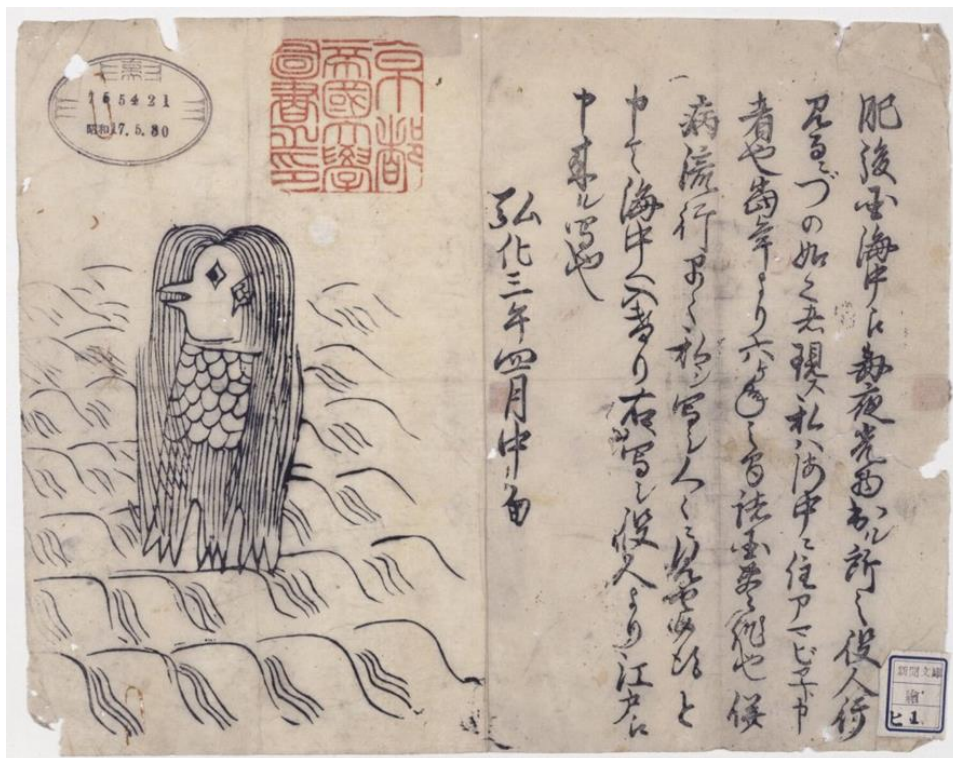 肥後国海中江毎夜光物出ル所之役人行
見るニづの如く者現ス私ハ海中ニ住アマビヱト申
者也当年より六ヶ年之間諸国豊作也併
病流行早々私シ写シ人々ニ見せ候得と
申て海中へ入けり右写シ役人より江戸江
申来ル写也
弘化三年四月中旬
京都
帝國大學
圖書之印
昭和17.5.30
新聞文庫
繪
ヒ1